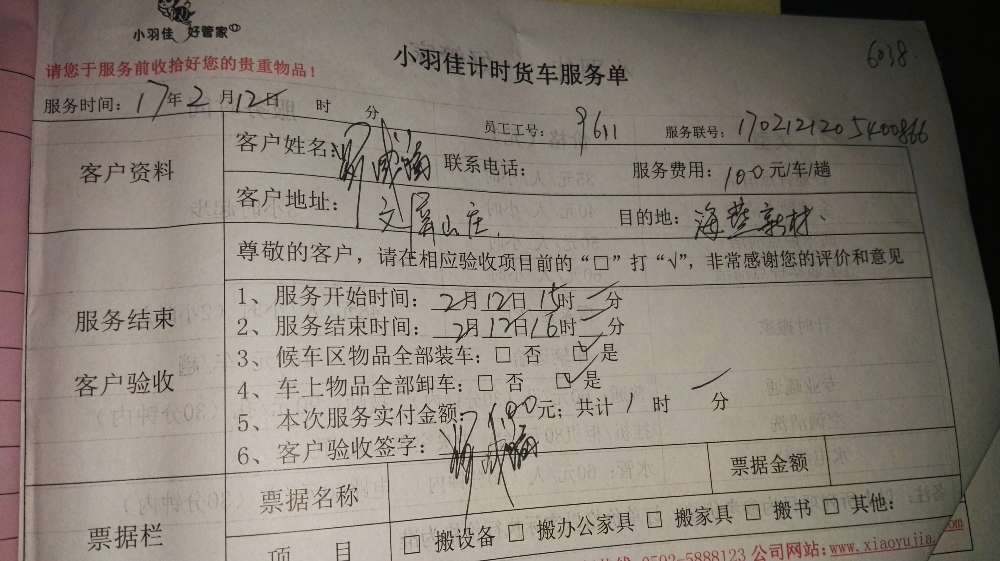 小羽佳 好管家
6038
小羽佳计时货车服务单
请您于服务前收拾好您的贵重物品！
服务时间：17年2月12日 时 分 员工工号：9611 服务联号：1702121205400866
客户资料
客户姓名： 联系电话： 服务费用：100元/车/趟
客户地址：文屏山庄 目的地：海燕新材
尊敬的客户，请在相应验收项目前的“□”打“√”，非常感谢您的评价和意见
服务结束
客户验收
1、服务开始时间：2月12日15时 分
2、服务结束时间：2月12日16时 分
3、候车区物品全部装车：□ 否 □ 是
4、车上物品全部卸车：□ 否 □ 是
5、本次服务实付金额：100元；共计1时 分
6、客户验收签字：
票据栏
票据名称 票据金额
项 目 □ 搬设备 □ 搬办公家具 □ 搬家具 □ 搬书 □ 其他：
0592-5888123 公司网站：www.xiaoyujia.com